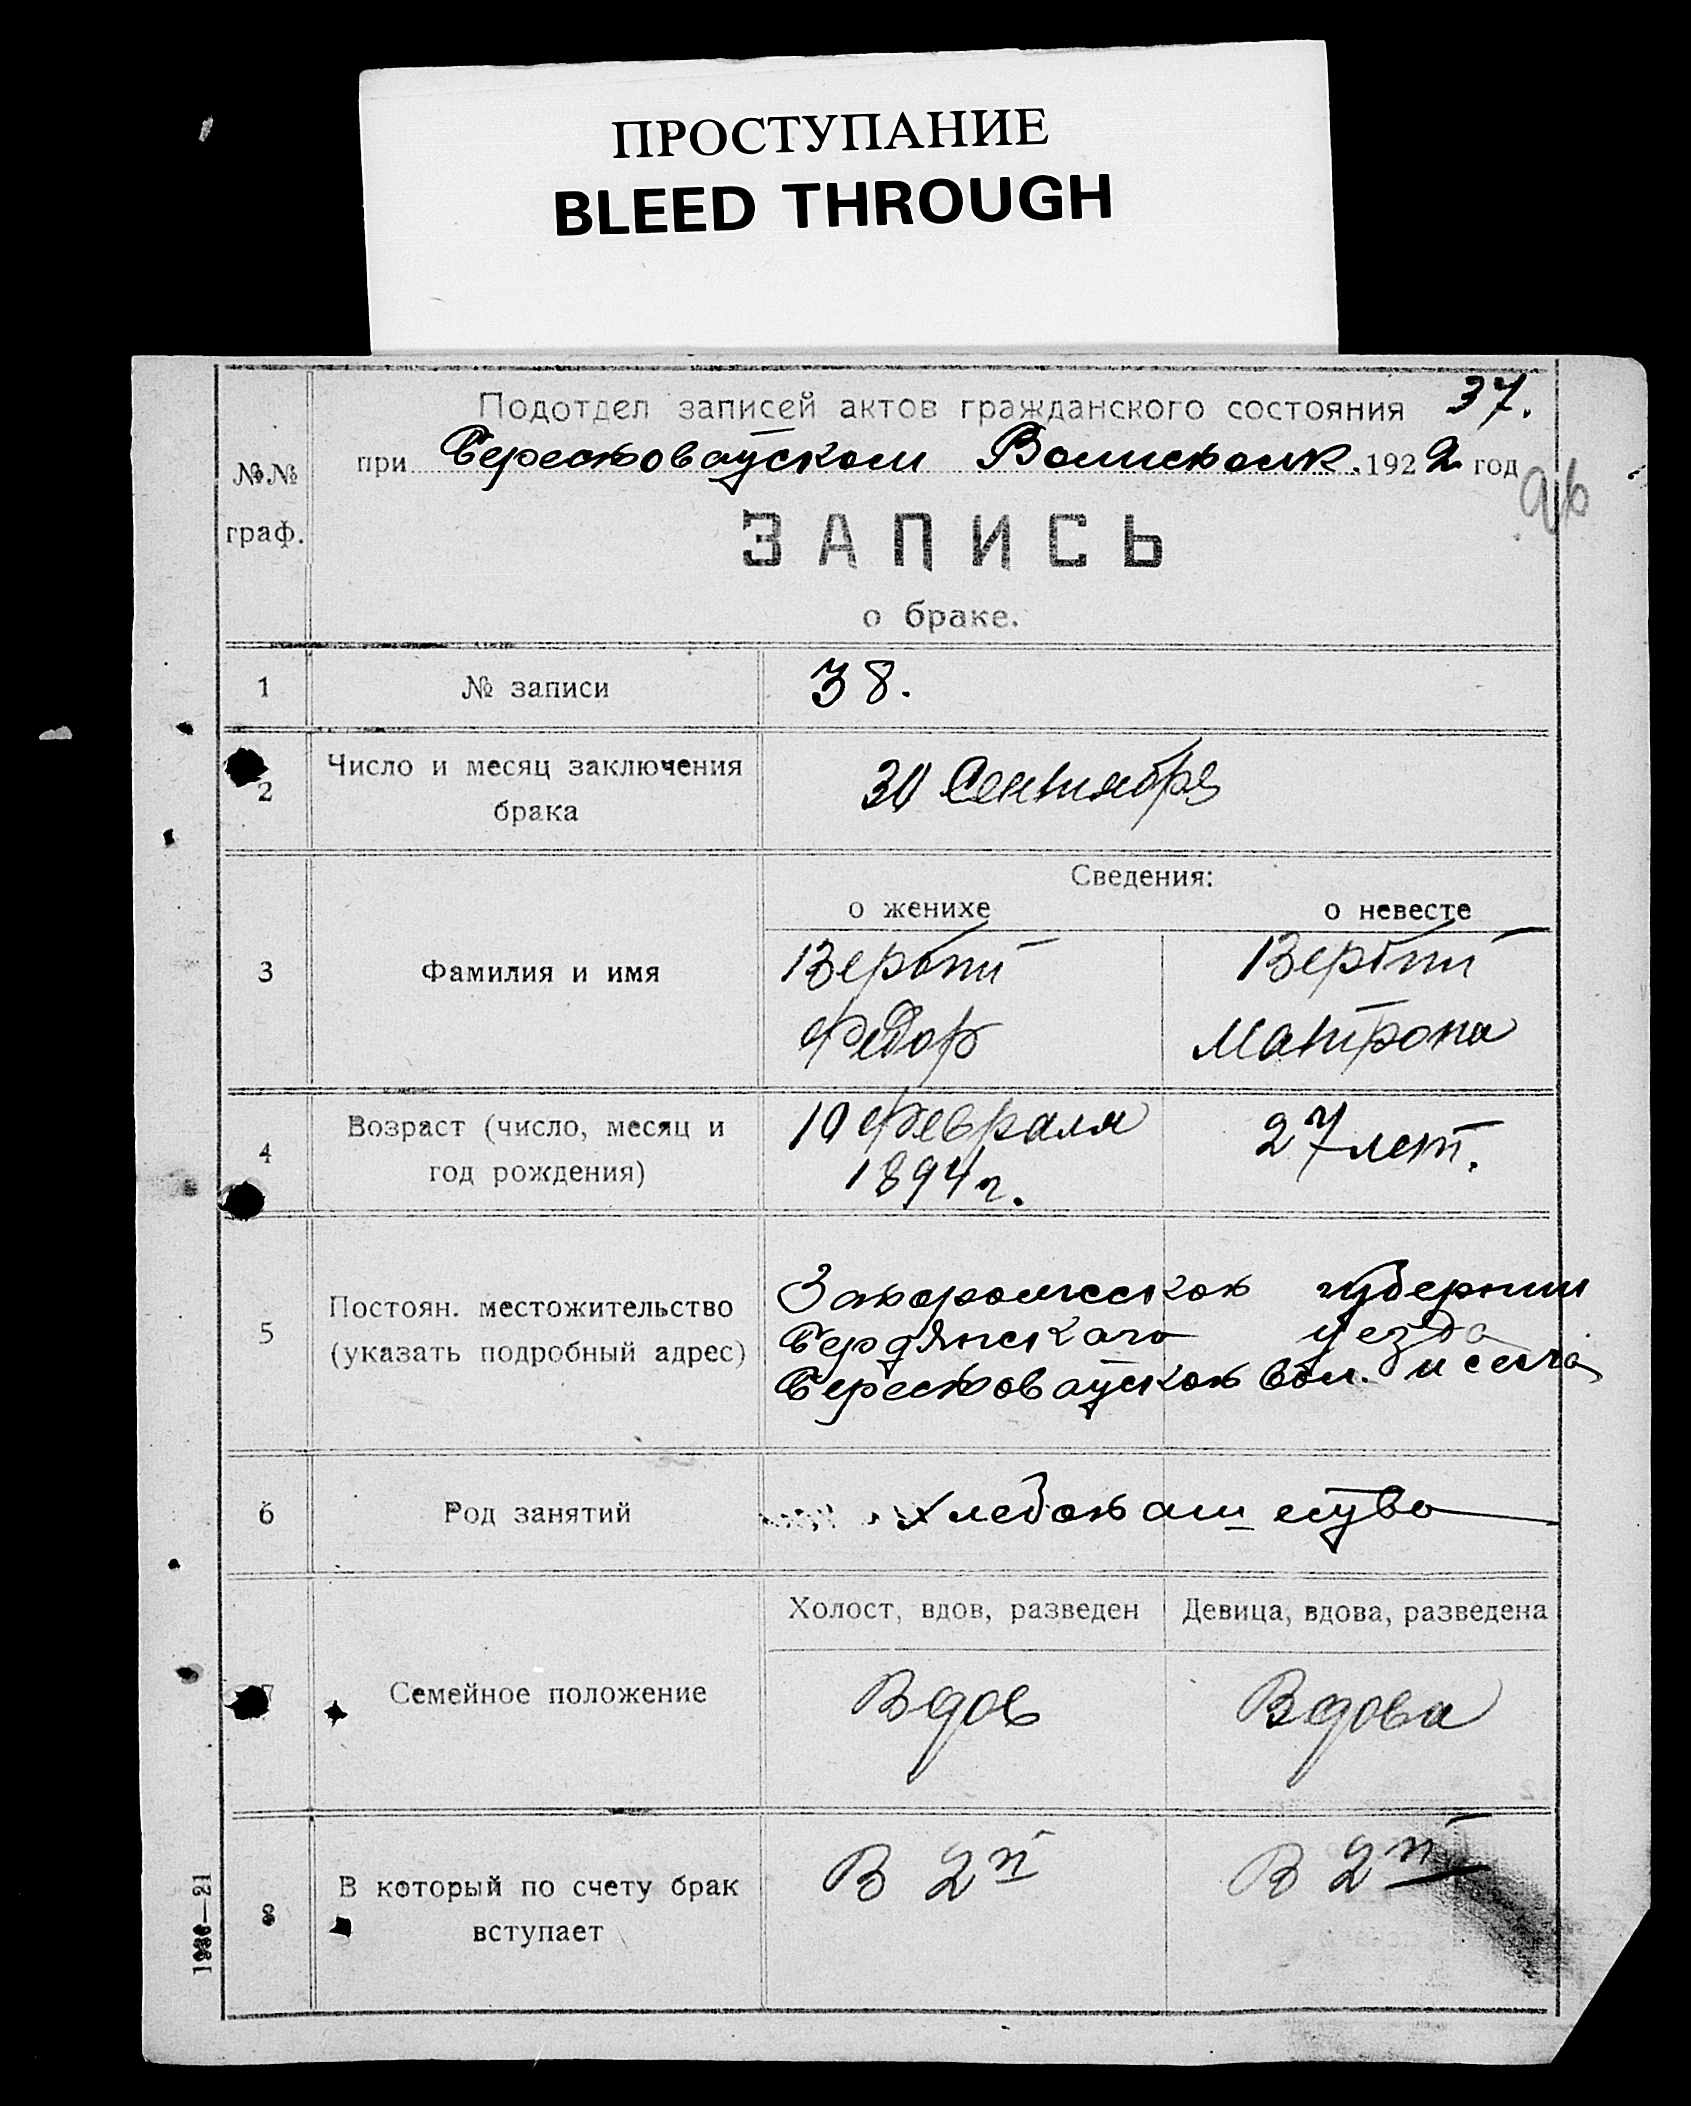 ПРОСТУПАНИЕ
BLEED THROUGH
37.
Подотдел записей актов гражданского состояния
при Берестоваⷮском Волисполк. 1922 год
№№
граф.
ЗАПИСЬ
о браке.
1 № записи 38.
2 Число и месяц заключения
брака
30 Сентября
Сведения:
о женихе о невесте
3 Фамилия и имя
Вербий Вербий
Федор Матрона
4 Возраст (число, месяц и
год рождения)
10 Февраля 27 лет.
1894 г.
5 Постоян. местожительство
(указать подробный адрес)
Запорожской губернии
Бердянского уезда
вол. и села
6 Род занятий Хлебопашество
Холост, вдов, разведен Девица, вдова, разведена
7 Семейное положение Вдов Вдова
8 В который по счету брак
вступает
В 2й В 2й